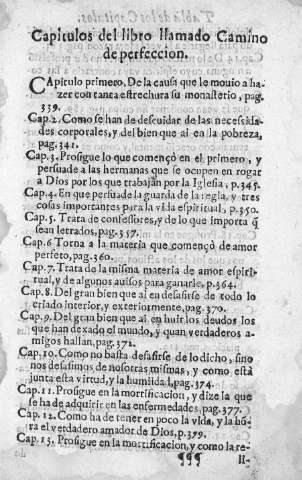 Capitulos del libro llamado Camino
de perfeccion.
CApitulo primero. De la causa que le mouio a ha-
zer con tanta estrechura su monasterio, pag.
339.
Cap. 2. Como se han de descuidar de las necesida-
des corporales, y del bien que ai en la pobreza,
pag. 341.
Cap. 3. Prosigue lo que començò en el primero, y
persuade a las hermanas que se ocupen en rogar
a Dios por los que trabajan por la Iglesia, p. 345.
Cap. 4. En que persuade la guarda de la regla, y tres
cosas importantes para la vida espiritual, p. 350.
Cap. 5. Trata de confessores, y de lo que importa q̃
sean letrados, pag. 357.
Cap. 6 Torna a la materia que començò de amor
perfeto, pag. 360.
Cap. 7. Trata de la misma materia de amor espiri-
tual, y de algunos auisos para ganarle, p. 364.
Cap. 8. Del gran bien que ai en desasirse de todo lo
criado interior, y exteriormente, pag. 370.
Cap. 9. Del gran bien que ai en huir los deudos los
que han dexado el mundo, y quan verdaderos a-
migos hallan, pag. 372.
Cap. 10. Como no basta desasirse de lo dicho, sino
nos desasimos de nosotras mismas, y como està
junta esta virtud, y la humildad, pag. 374.
Cap. 11. Prosigue en la mortificacion, y dize la que
se ha de adquirir en las enfermedades, pag. 377.
Cap. 12. Como ha de tener en poco la vida, y la hõ-
ra el verdadero amador de Dios, p. 379.
Cap. 13. Prosigue en la mortificacion, y como la re-
¶¶¶ li-